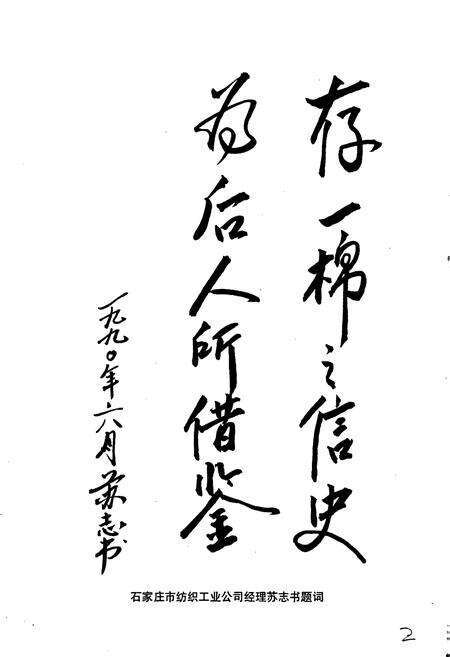 存一棉之信史
为后人所借鉴
一九九〇年六月 苏志书
石家庄市纺织工业公司经理苏志书题词
2